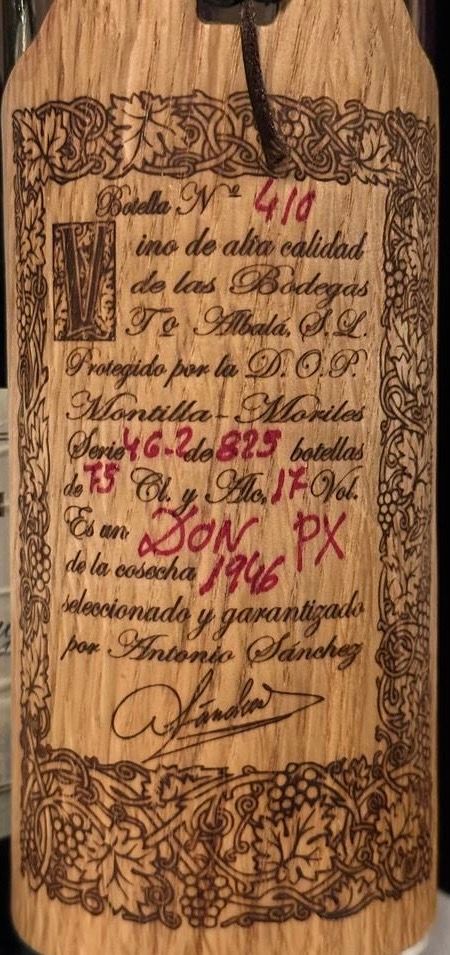 Botella Nº 410
Vino de alta calidad
de las Bodegas
Tº Albalá, S.L.
Protegido por la D.O.P.
Montilla-Moriles
Serie 46-2 de 825 botellas
de 75 Cl. y Alc, 17 Vol.
Es un DON PX
de la cosecha 1946
seleccionado y garantizado
por Antonio Sánchez